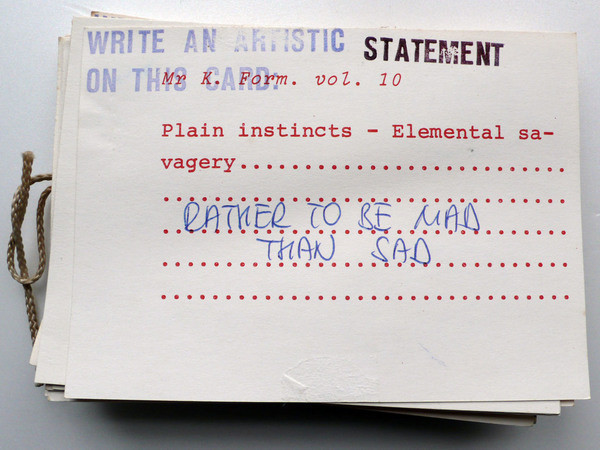 WRITE AN ARTISTIC STATEMENT
ON THIS CARD:
Mr K. Form. vol. 10
Plain instincts - Elemental sa-
vagery..............................
RATHER TO BE MAD
THAN SAD